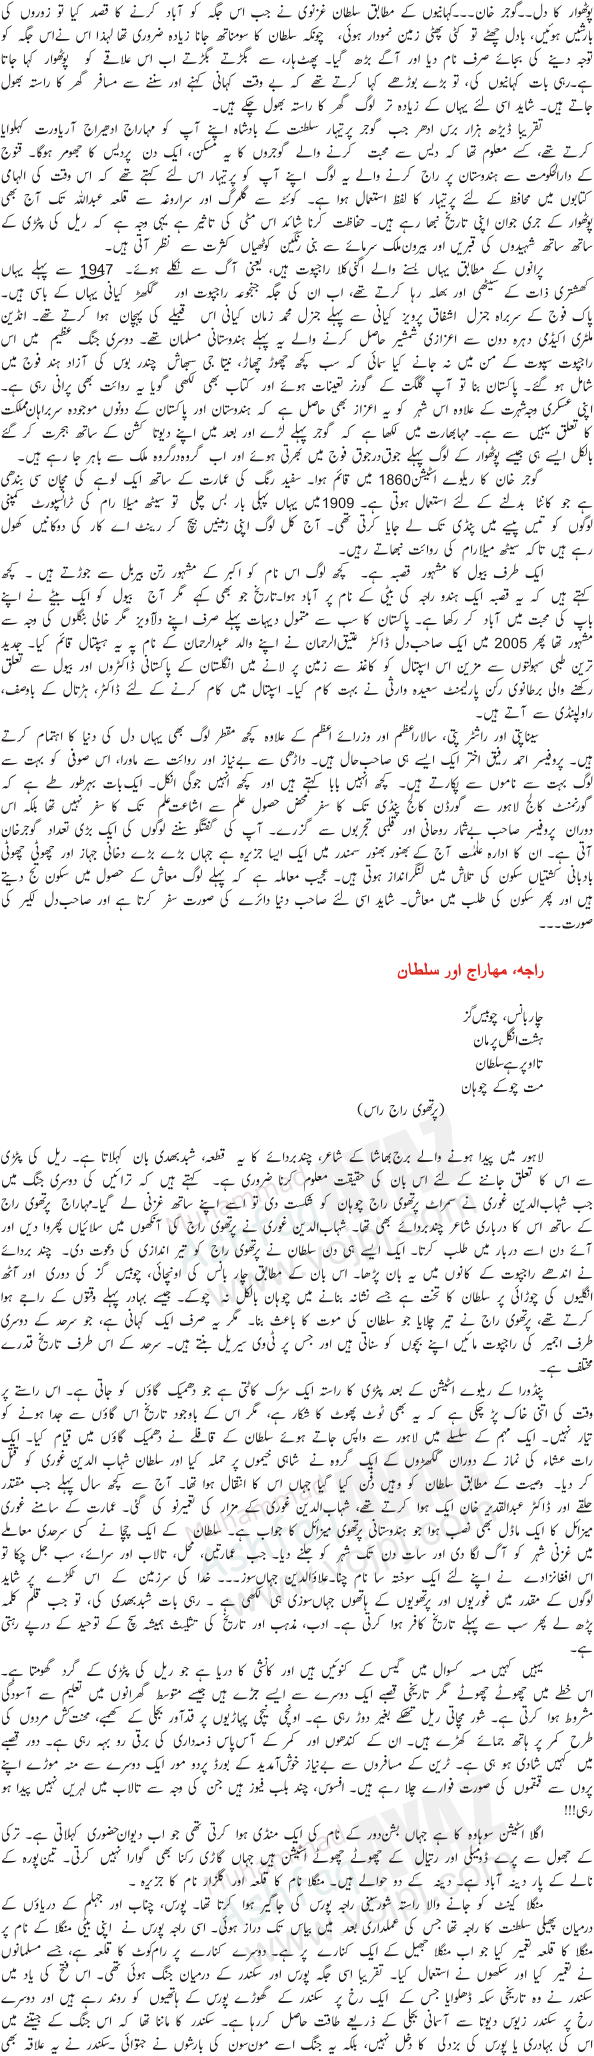 پوٹھوار کا دل۔۔گوجر خان۔۔۔کہانیوں کے مطابق سلطان غزنوی نے جب اس جگہ کو آباد کرنے کا قصد کیا تو زوروں کی
بارشیں ہوئیں، بادل چھٹے تو کٹی پھٹی زمین نمودار ہوئی، چونکہ سلطان کا سومناتھ جانا زیادہ ضروری تھا لہذا اس نے اس جگہ کو
توجہ دینے کی بجائے صرف نام دیا اور آگے بڑھ گیا۔ پھٹ ہار، سے بگڑتے بگڑتے اب اس علاقے کو پوٹھوار کہا جاتا
ہے۔رہی بات کہانیوں کی، تو بڑے بوڑھے کہا کرتے تھے کہ بے وقت کہانی کہنے اور سننے سے مسافر گھر کا راستہ بھول
جاتے ہیں۔ شاید اسی لئے یہاں کے زیادہ تر لوگ گھر کا راستہ بھول چکے ہیں۔
تقریبا ڈیڑھ ہزار برس ادھر جب گوجر پرتیہار سلطنت کے بادشاہ اپنے آپ کو مہاراج ادھیراج آریاورت کہلوایا
کرتے تھے، کسے معلوم تھا کہ دیس سے محبت کرنے والے گوجروں کا یہ مسکن، ایک دن پردیس کا جھومر ہوگا۔ قنوج
کے دارالحکومت سے ہندوستان پر راج کرنے والے یہ لوگ اپنے آپ کو پرتیہار اس لئے کہتے تھے کہ اس وقت کی الہامی
کتابوں میں محافظ کے لئے پرتیہار کا لفظ استعمال ہوا ہے۔ کوئٹہ سے گلمرگ اور سراروغہ سے قلعہ عبداللہ تک آج بھی
پوٹھوار کے جری جوان اپنی تاریخ نبھا رہے ہیں۔ حفاظت کرنا شائد اس مٹی کی تاثیر ہے یہی وجہ ہے کہ ریل کی پٹڑی کے
ساتھ ساتھ شہیدوں کی قبریں اور بیرون ملک سرمائے سے بنی رنگین کوٹھیاں کثرت سے نظر آتی ہیں۔
پرانوں کے مطابق یہاں بسنے والے اگنی کلا راجپوت ہیں، یعنی آگ سے نکلے ہوئے۔ 1947 سے پہلے یہاں
کھشتری ذات کے سیٹھی اور بھلہ رہا کرتے تھے، اب ان کی جگہ جنجوعہ راجپوت اور گکھڑ کیانی یہاں کے باسی ہیں۔
پاک فوج کے سربراہ جنرل اشفاق پرویز کیانی سے پہلے جنرل محمد زمان کیانی اس قبیلے کی پہچان ہوا کرتے تھے۔ انڈین
ملٹری اکیڈمی دہرہ دون سے اعزازی شمشیر حاصل کرنے والے یہ پہلے ہندوستانی مسلمان تھے۔ دوسری جنگ عظیم میں اس
راجپوت سپوت کے من میں نہ جانے کیا سمائی کہ سب کچھ چھوڑ چھاڑ، نیتا جی سبھاش چندر بوس کی آزاد ہند فوج میں
شامل ہو گئے۔ پاکستان بنا تو آپ گلگت کے گورنر تعینات ہوئے اور کتاب بھی لکھی گویا یہ روائت بھی پرانی رہی ہے۔
اپنی عسکری وجہ شہرت کے علاوہ اس شہر کو یہ اعزاز بھی حاصل ہے کہ ہندوستان اور پاکستان کے دونوں موجودہ سربراہان مملکت
کا تعلق یہیں سے ہے۔ مہابھارت میں لکھا ہے کہ گوجر پہلے لڑے اور بعد میں اپنے دیوتا کشن کے ساتھ ہجرت کر گئے
بالکل ایسے ہی جیسے پوٹھوار کے لوگ پہلے جوق درجوق فوج میں بھرتی ہوئے اور اب گروہ درگروہ ملک سے باہر جا رہے ہیں۔
گوجر خان کا ریلوے اسٹیشن 1860 میں قائم ہوا۔ سفید رنگ کی عمارت کے ساتھ ایک لوہے کی مچان سی بندھی
ہے جو کانٹا بدلنے کے لئے استعمال ہوتی ہے۔ 1909 میں یہاں پہلی بار بس چلی تو سیٹھ میلا رام کی ٹرانسپورٹ کمپنی
لوگوں کو تیس پیسے میں پنڈی تک لے جایا کرتی تھی۔ آج کل لوگ اپنی زمینیں بیچ کر رینٹ اے کار کی دوکانیں کھول
رہے ہیں تاکہ سیٹھ میلا رام کی روائت نبھاتے رہیں۔
ایک طرف بیول کا مشہور قصبہ ہے۔ کچھ لوگ اس نام کو اکبر کے مشہور رتن بیربل سے جوڑتے ہیں ۔ کچھ
کہتے ہیں کہ یہ قصبہ ایک ہندو راجہ کی بیٹی کے نام پر آباد ہوا۔تاریخ جو بھی کہے مگر آج بیول کو ایک بیٹے نے اپنے
باپ کی محبت میں آباد کر رکھا ہے۔ پاکستان کا سب سے متمول دیہات پہلے صرف اپنے دلآویز مگر خالی بنگلوں کی وجہ سے
مشہور تھا پھر 2005 میں ایک صاحب دل ڈاکٹر عتیق الرحمان نے اپنے والد عبدالرحمان کے نام پہ یہ ہسپتال قائم کیا۔ جدید
ترین طبی سہولتوں سے مزین اس اسپتال کو کاغذ سے زمین پر لانے میں انگلستان کے پاکستانی ڈاکٹروں اور بیول سے تعلق
رکھنے والی برطانوی رکن پارلیمنٹ سعیدہ وارثی نے بہت کام کیا۔ اسپتال میں کام کرنے کے لئے ڈاکٹر، ہڑتال کے باوصف،
راولپنڈی سے آتے ہیں۔
سیناپتی اور راشٹر پتی، سالاراعظم اور وزرائے اعظم کے علاوہ کچھ مقطر لوگ بھی یہاں دل کی دنیا کا اہتمام کرتے
ہیں۔ پروفیسر احمد رفیق اختر ایک ایسے ہی صاحب حال ہیں۔ داڑھی سے بے نیاز اور روائت سے ماورا، اس صوفی کو بہت سے
لوگ بہت سے ناموں سے پکارتے ہیں۔ کچھ انہیں بابا کہتے ہیں اور کچھ انہیں جوگی انکل۔ ایک بات بہرطور طے ہے کہ
گورنمنٹ کالج لاہور سے گورڈن کالج پنڈی تک کا سفر محض حصول علم سے اشاعت علم تک کا سفر نہیں تھا بلکہ اس
دوران پروفیسر صاحب بے شمار روحانی اور قلبی تجربوں سے گزرے۔ آپ کی گفتگو سننے لوگوں کی ایک بڑی تعداد گوجرخان
آتی ہے۔ ان کا ادارہ علامت آج کے بھنور بھنور سمندر میں ایک ایسا جزیرہ ہے جہاں بڑے بڑے دخانی جہاز اور چھوٹی چھوٹی
بادبانی کشتیاں سکون کی تلاش میں لنگرانداز ہوتی ہیں۔ عجیب معاملہ ہے کہ پہلے لوگ معاش کے حصول میں سکون تج دیتے
ہیں اور پھر سکون کی طلب میں معاش۔ شاید اسی لئے صاحب دنیا دائرے کی صورت سفر کرتا ہے اور صاحب دل لکیر کی
صورت۔۔۔
راجہ، مہاراج اور سلطان
چار بانس، چوبیس گز
ہشت انگل پرمان
تا اوپر ہے سلطان
مت چوکے چوہان
(پرتھوی راج راس)
لاہور میں پیدا ہونے والے برج بھاشا کے شاعر، چند بردائے کا یہ قطعہ، شبد بھدی بان کہلاتا ہے۔ ریل کی پٹڑی
سے اس کا تعلق جاننے کے لئے اس بان کی حقیقت معلوم کرنا ضروری ہے۔ کہتے ہیں کہ ترائیں کی دوسری جنگ میں
جب شہاب الدین غوری نے سمراٹ پرتھوی راج چوہان کو شکست دی تو اسے اپنے ساتھ غزنی لے گیا۔مہاراج پرتھوی راج
کے ساتھ اس کا درباری شاعر چند بردائے بھی تھا۔ شہاب الدین غوری نے پرتھوی راج کی آنکھوں میں سلائیاں پھروا دیں اور
آئے دن اسے دربار میں طلب کرتا۔ ایک ایسے ہی دن سلطان نے پرتھوی راج کو تیر اندازی کی دعوت دی۔ چند بردائے
نے اندھے راجپوت کے کانوں میں یہ بان پڑھا۔ اس بان کے مطابق چار بانس کی اونچائی، چوبیس گز کی دوری اور آٹھ
انگلیوں کی چوڑائی پر سلطان کا تخت ہے جسے نشانہ بنانے میں چوہان بالکل نہ چوکے۔ جیسے بہادر پہلے وقتوں کے راجے ہوا
کرتے تھے، پرتھوی راج نے تیر چلایا جو سلطان کی موت کا باعث بنا۔ مگر یہ صرف ایک کہانی ہے، جو سرحد کے دوسری
طرف اجمیر کی راجپوت مائیں اپنے بچوں کو سناتی ہیں اور جس پر ٹی وی سیریل بنتے ہیں۔ سرحد کے اس طرف تاریخ قدرے
مختلف ہے۔
پنڈورا کے ریلوے اسٹیشن کے بعد پٹڑی کا راستہ ایک سڑک کاٹتی ہے جو دھمیک گاؤں کو جاتی ہے۔ اس راستے پر
وقت کی اتنی خاک پڑ چکی ہے کہ یہ بھی ٹوٹ پھوٹ کا شکار ہے، مگر اس کے باوجود تاریخ اس گاؤں سے جدا ہونے کو
تیار نہیں۔ ایک مہم کے سلسلے میں لاہور سے واپس جاتے ہوئے سلطان کے قافلے نے دھمیک گاؤں میں قیام کیا۔ ایک
رات عشاء کی نماز کے دوران گکھڑوں کے ایک گروہ نے شاہی خیموں پر حملہ کیا اور سلطان شہاب الدین غوری کو قتل
کر دیا۔ وصیت کے مطابق سلطان کو وہیں دفن کیا گیا جہاں اس کا انتقال ہوا تھا۔ آج سے کچھ سال پہلے جب مقتدر
حلقے اور ڈاکٹر عبدالقدیر خان ایک ہوا کرتے تھے، شہاب الدین غوری کے مزار کی تعمیر نو کی گئی۔ عمارت کے سامنے غوری
میزائل کا ایک ماڈل بھی نصب ہوا جو ہندوستانی پرتھوی میزائل کا جواب ہے۔ سلطان کے ایک چچا نے کسی سرحدی معاملے
میں غزنی شہر کو آگ لگا دی اور سات دن تک شہر کو جلنے دیا۔ جب عمارتیں، محل، تالاب اور سرائے، سب جل چکا تو
اس افغانزادے نے اپنے لئے ایک سوختہ سا نام چنا۔علاؤالدین جہاں سوز۔۔۔ خدا کی سرزمین کے اس ٹکڑے پر شاید
لوگوں کے مقدر میں غوریوں اور پرتھویوں کے ہاتھوں جہاں سوزی ہی لکھی ہے ۔ رہی بات شبد بھدی کی، تو جب قلم کلمہ
پڑھ لے پھر سب سے پہلے تاریخ کافر ہوا کرتی ہے۔ ادب، مذہب اور تاریخ کی تثلیث ہمیشہ سچ کے توحید کے درپے رہتی
ہے۔
یہیں کہیں مسہ کسوال میں گیس کے کنوئیں ہیں اور کانشی کا دریا ہے جو ریل کی پٹڑی کے گرد گھومتا ہے۔
اس خطے میں چھوٹے چھوٹے مگر تاریخی قصبے ایک دوسرے سے ایسے جڑے ہیں جیسے متوسط گھرانوں میں تعلیم سے آسودگی
مشروط ہوا کرتی ہے۔ شور مچاتی ریل تھکے بغیر دوڑ رہی ہے۔ اونچی نیچی پہاڑیوں پر قدآور بجلی کے کھمبے، محنت کش مردوں کی
طرح کمر پر ہاتھ جمائے کھڑے ہیں۔ ان کے کندھوں اور کمر کے آس پاس ذمہ داری کی برقی رو بہہ رہی ہے۔ دور قصبے
میں کہیں شادی ہو ہی ہے۔ ٹرین کے مسافروں سے بے نیاز خوش آمدید کے بورڈ پر دو مور ایک دوسرے سے منہ موڑے اپنے
پروں سے قمقموں کی صورت فوارے چلا رہے ہیں۔ افسوس، چند بلب فیوز ہیں جن کی وجہ سے تالاب میں لہریں نہیں پیدا ہو
رہی!!!
اگلا اسٹیشن سوہاوہ کا ہے جہاں بشن دور کے نام کی ایک منڈی ہوا کرتی تھی جو اب دیوان حضوری کہلاتی ہے۔ ترکی
کے جھول سے پرے ڈومیلی اور رتیال کے چھوٹے چھوٹے اسٹیشن ہیں جہاں گاڑی رکنا بھی گوارا نہیں کرتی۔ تین پورہ کے
نالے کے پار دینہ آباد ہے۔ دینہ کے دو حوالے ہیں۔ منگلا نام کا قلعہ اور گلزار نام کا جزیرہ ۔
منگلا کینٹ کو جانے والا راستہ شورسینی راجہ پورس کی جاگیر ہوا کرتا تھا۔ پورس، چناب اور جہلم کے دریاؤں کے
درمیان پھیلی سلطنت کا راجہ تھا جس کی عملداری بعد میں بیاس تک دراز ہوئی۔ اسی راجہ پورس نے اپنی بیٹی منگلا کے نام پر
منگلا کا قلعہ تعمیر کیا جو اب منگلا جھیل کے ایک کنارے پر ہے۔ دوسرے کنارے پر رام کوٹ کا قلعہ ہے، جسے مسلمانوں
نے تعمیر کیا اور سکھوں نے استعمال کیا۔ تقریبا اسی جگہ پورس اور سکندر کے درمیان جنگ ہوئی تھی۔ اس فتح کی یاد میں
سکندر نے وہ تاریخی سکہ ڈھلوایا جس کے ایک رخ پر سکندر کے گھوڑے پورس کے ہاتھیوں کو روند رہے ہیں اور دوسرے
رخ پر سکندر زیوس دیوتا سے آسمانی بجلی کے ذریعے طاقت حاصل کررہا ہے۔ سکندر کا ماننا تھا کہ اس جنگ کے جیتنے میں
اس کی بہادری یا پورس کی بزدلی کا دخل نہیں، بلکہ یہ جنگ اسے مون سون کی بارشوں نے جتوائی ۔سکندر نے یہ علاقہ بھی